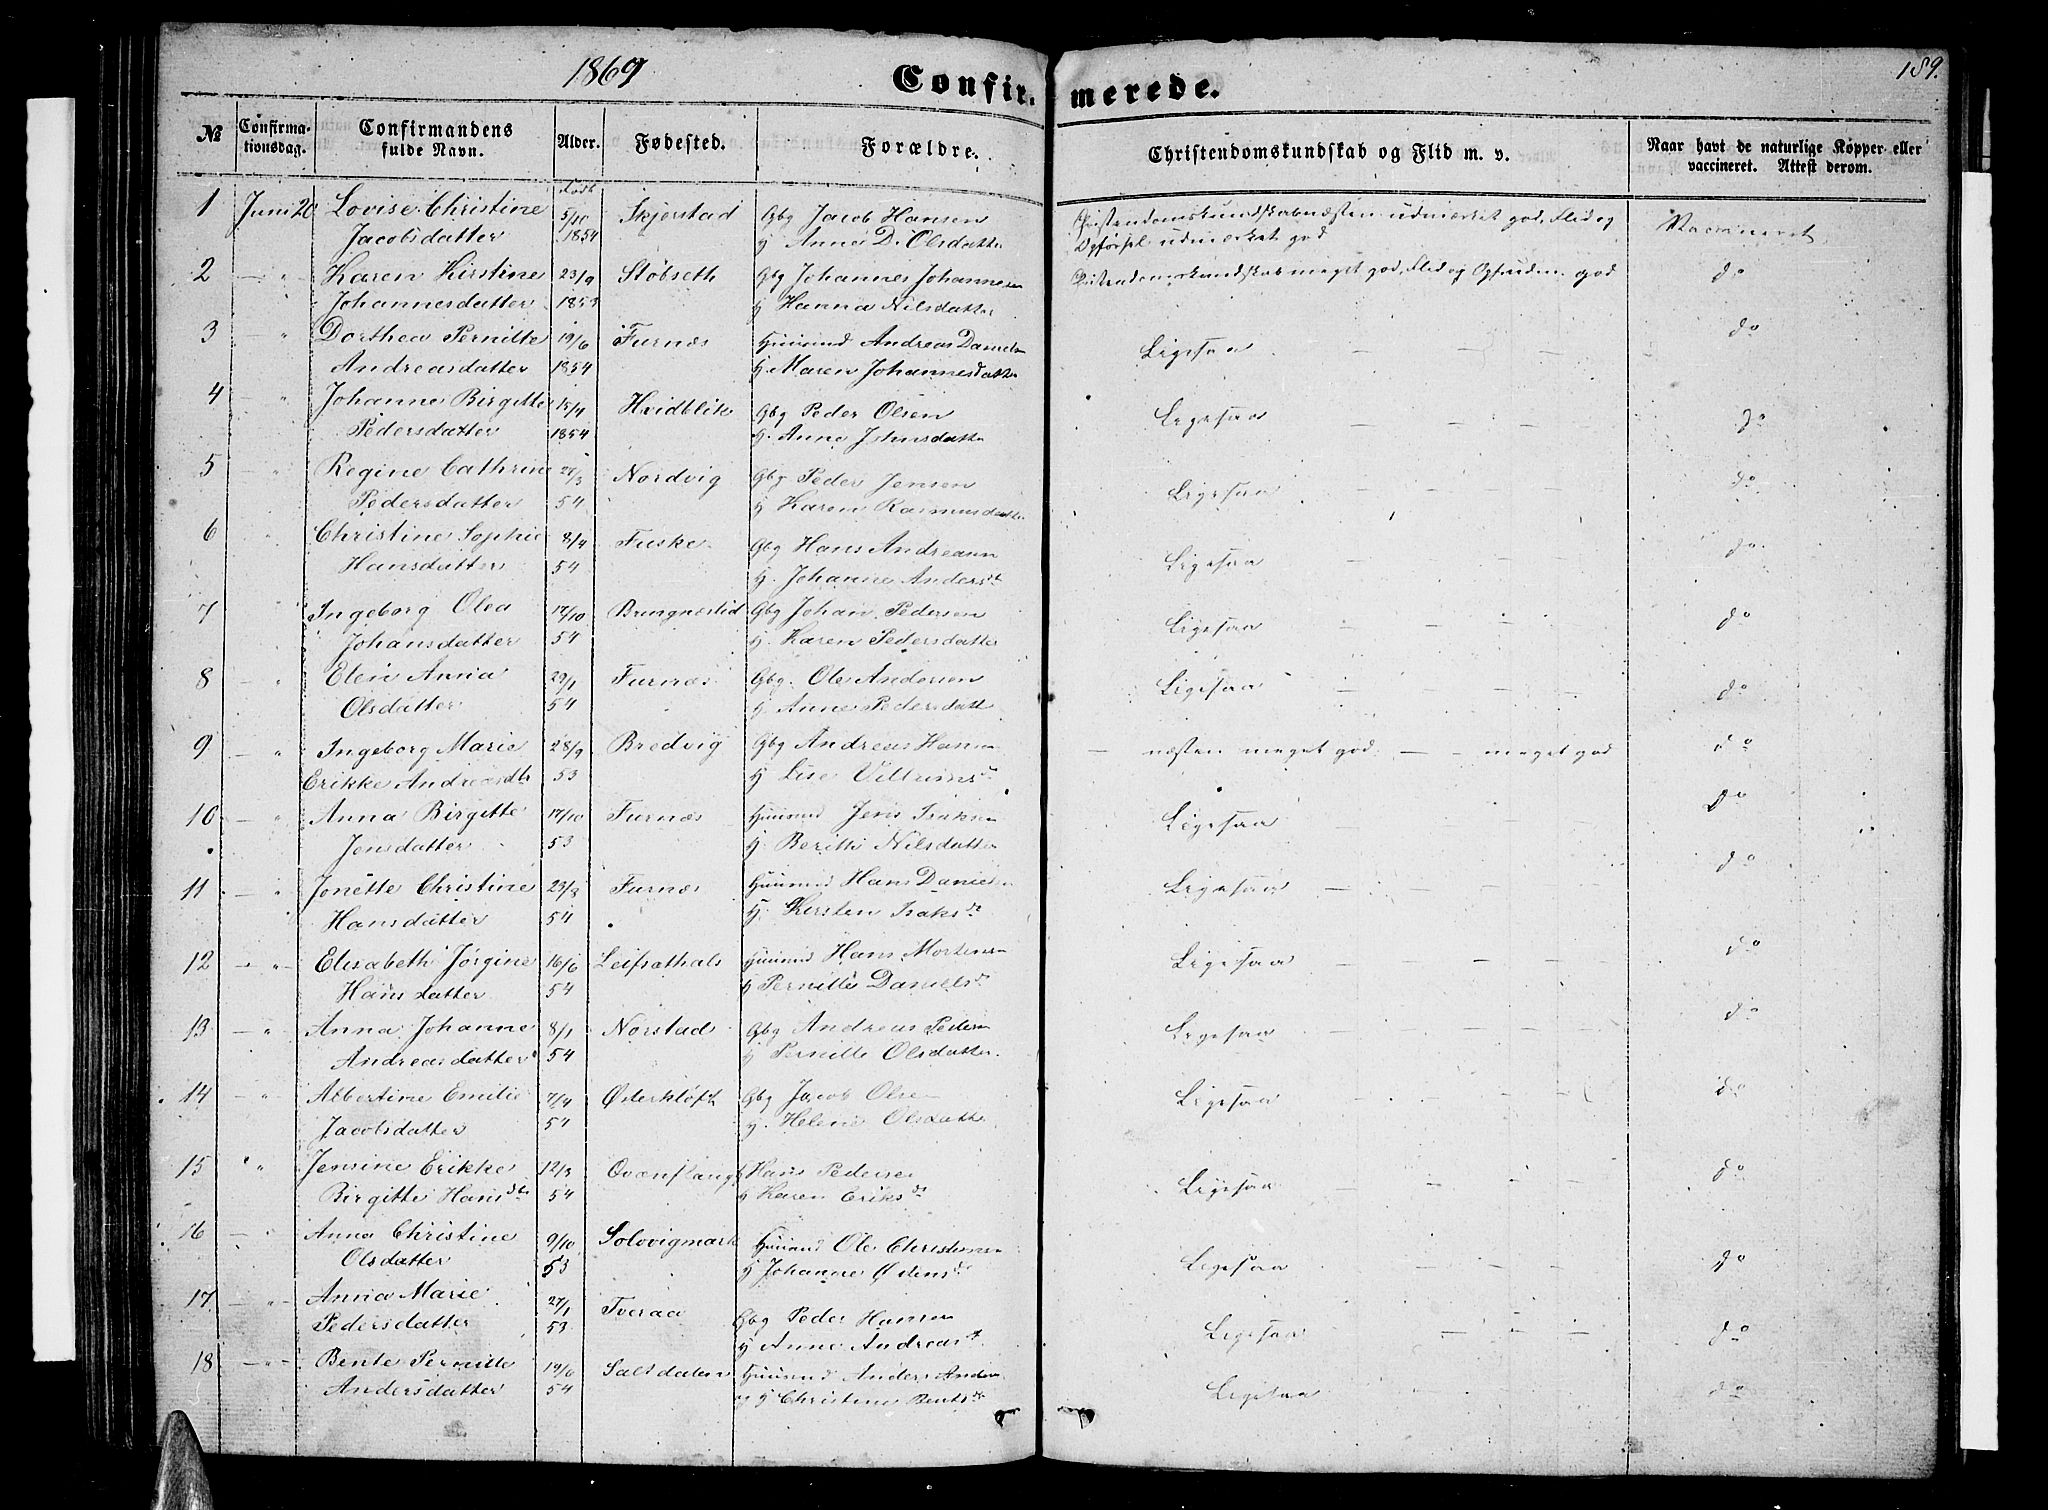 1869 Confirmerede. 189.
№ Confirmationsdag. Confirmandens fulde Navn. Alder. Fødested. Forældre. Christendomskundskab og Flid m. v. Naar havt de naturlige Kopper eller vaccineret. Attest derom.
1 Juni 20 Lovise Christine født 5/10 Skjerstad Gbg Jacob Hansen Christendomskundskab næsten udmærket god, Flid og Vaccineret
Jacobsdatter 1854 H Anne D. Olsdatter Opførsel udmærket god
2 — " Karen Kirstine 23/9 Støbseth Gbg Johannes Johannesen Christendomskundskab meget god, Flid og god do
Johannesdatter 1853 H Hanna Nilsdatter
3 — " Dorthea Pernille 19/6 Furnæs Huusmd Andreas Daniels Ligesaa — — — — do
Andreasdatter 1854 H. Maren Johannesdatter
4 — " Johanne Birgitte 15/4 Hvidblik Gbg Peder Olsen Ligesaa — — — — do
Pedersdatter 1854 H. Anne Johnsdatter
5 — " Regine Cathrine 27/3 Nordvig Gbg Peder Jensen Ligesaa — — — — do
Pedersdatter 54 H Karen Rasmusdatter
6 " Christine Sophie 8/4 Fuske Gbg Hans Andreasen Ligesaa — — — — do
Hansdatter 54 H. Johanne Andersdt
7 " Ingeborg Olea 17/10 Gbg Johan Pedersen Ligesaa — — — — do
Johansdatter 54 H. Karen Pedersdatter
8 — " Elen Anna 29/1 Furnæs Gbg. Ole Andersen Ligesaa — — — — do
Olsdatter 54 H Anne Pedersdatt
9 — " Ingeborg Marie 28/9 Bredvig Gbg Andreas Hansen — næsten meget god — - meget god do
Erikke Andreasdtr 53 H Lise
10 — " Anna Birgitte 17/10 Furnæs Huusmd Jens Isaksen Ligesaa — — — — do
Jensdatter 53 H Berith Nilsdatter
11 — " Jonette Christine 23/3 Furnæs Huusmd Hans Danielsen Ligesaa — — — — do
Hansdatter 54 H. Kirsten Isaksdt
12 — " — Elisabeth Jørgine 16/6 Leifsethals Huusmd Hans Mortensen Ligesaa — — — — do
Hansdatter 54 H Pernille Danielsdt
13 — " Anna Johanne 8/1 Norstad Gbg Andreas Pedersen Ligesaa — — — — do
Andreasdatter 54 H Pernille Olsdatter
14 — " — Albertine Emilie 7/4 Østerkløft Gbg Jacob Olsen Ligesaa — — — — do
Jacobsdatter 54 H. Helene Olsdatter
15 " Jensine Erikke 12/3 Hans Pedersen Ligesaa — — — — do
Birgitte Hansdtr 54 H Karen Eriksdt
16 — " Anna Christine 9/10 Solovigmark Huusmd Ole Christensen Ligesaa — — — — do
Olsdatter 53 H Johanne
17 — " — Anna Marie 27/1 Tveraa Gbg Peder Hansen Ligesaa — — — do
Pedersdatter 53 H Anne Andreasdt
18 — " — Bente Pernille 19/6 Saltdalen Huusmd Anders Andersen Ligesaa do
Andersdatter 54 og H Christine Bentsdt